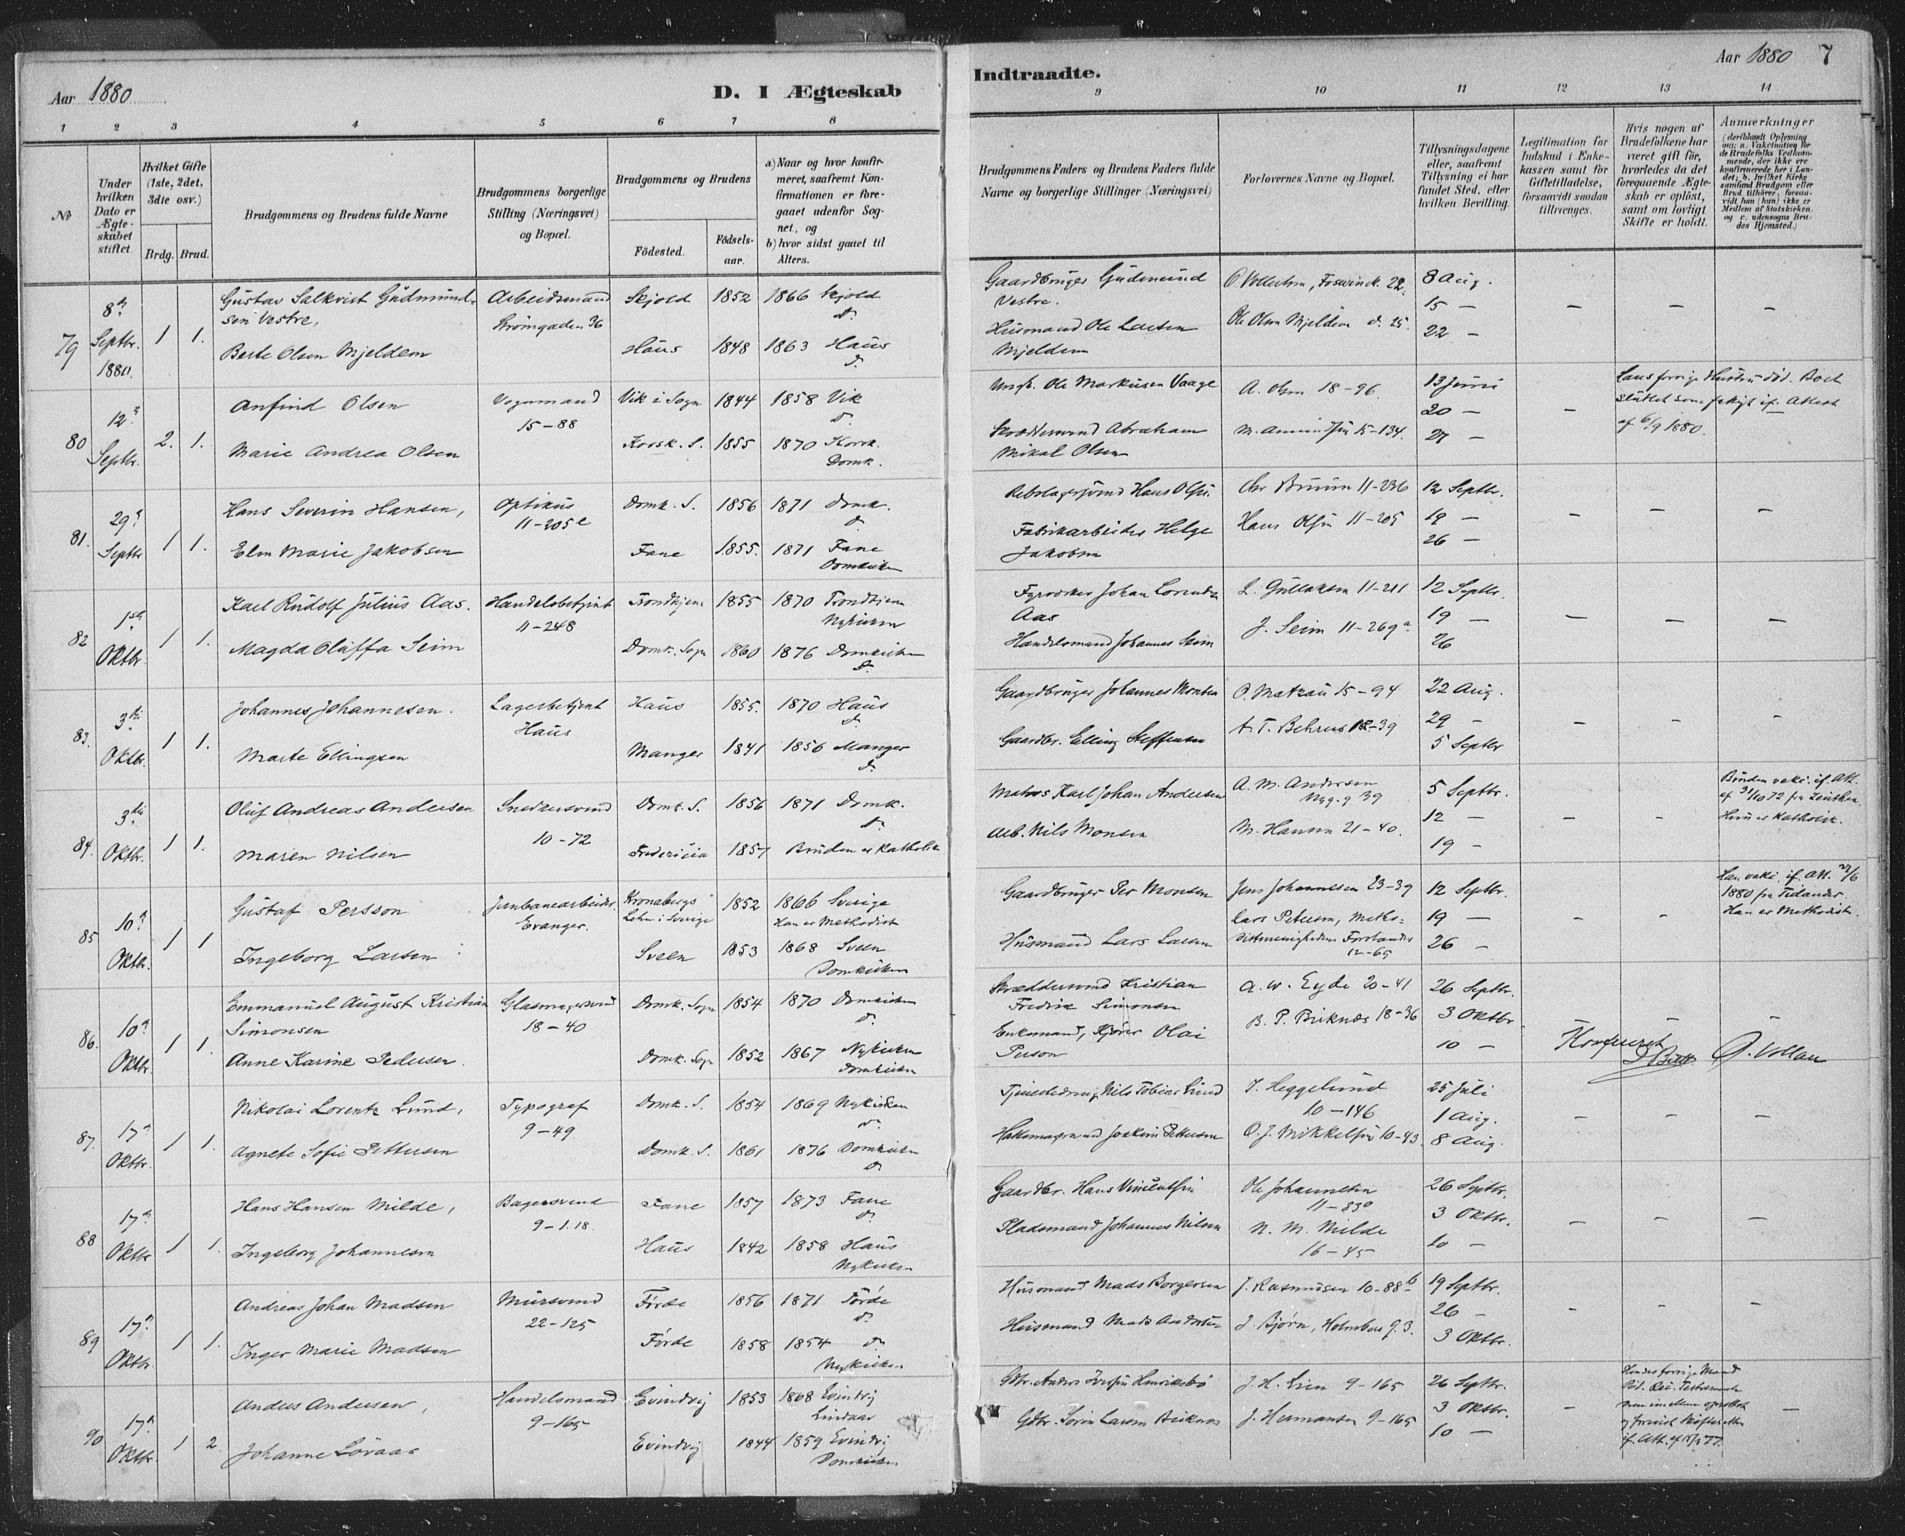 Aar 1880
D. I Ægteskab
Indtraadte.
Aar 1880
7
1 2 3 4 5 6 7 8 9 10 11 12 13 14
No
Under hvilken Dato er Ægteskabet stiftet.
Hvilket Gifte (1ste, 2det, 3die osv.)
Brdg. Brud.
Brudgommens og Brudens fulde Navne
Brudgommens borgerlige Stilling (Næringsvei) og Bopæl.
Brudgommens og Brudens
Födested.
Födselsaar.
a) Naar og hvor konfirmeret, saafremt Konfirmationen er foregaaet udenfor Sognet, og
b) hvor sidst gaaet til Alters.
Brudgommens Faders og Brudens Faders fulde Navne og borgerlige Stillinger (Næringsvei)
Forlovernes Navne og Bopæl.
Tillysningsdagene eller, saafremt Tillysning ei har fundet Sted, efter hvilken Bevilling.
Legitimation for Indskud i Enkekassen samt for Giftetilladelse, forsaavidt saadan tiltrænges.
Hvis nogen af Brudefolkene har været gift för, hvorledes da det foregaaende Ægteskab er oplöst, samt om lovligt Skifte er holdt.
Anmærkninger
79 8de Septbr. 1880. 1 1.
Gustav Salkvist Gudmundsen Vestre, Arbeidsmand Strömgaden 36 Skjold 1852 1866 Skjold do.
Gaardbruger Gudmund Vestre. 8 Aug.
15 —
Berte Olsen Mjeldem Haus 1848 1863 Haus do.
Husmand Ole Larsen Mjeldem Ole Olsen Mjeldem 22 —
80 12te Septbr. 2. 1.
Anfind Olsen Vognmand 15–88 Vik i Sogn 1844 1858 Vik do.
Ole Markusen Vaage A. Olsen 18–96. 13 Juni
20 —
Marie Andrea Olsen Korsk. S. 1855 1870 Korsk. Domk.
Abraham Mikal Olsen 15–134. 27 —
Hans forrige Hustru död. af 6/9 1880.
81. 29de Septbr 1 1.
Hans Severin Hansen, Optikus 11–205e Domk. S. 1856 1871 Domk. do.
Hans Olsen. Chr Bruun 11–236 12 Septbr.
Hans Olsen 11–205 19 —
Elen Marie Jakobsen Fane 1855. 1871 Fane Domkirken
Fabrikarbeider Helge Jakobsen 26 —
82 1ste Oktbr. 1 1.
Karl Rudolf Julius Aas. Handelsbetjent 11–248 Trondhjem 1855 1870 Trondhjem Nykirken
Johan Lorentz Aas L. Gullaksen 11–211 12 Septbr.
19 —
Magda Oluffa Seim Domk. Sogn 1860 1876 Domkirken do.
Handelsmand Johannes Seim J. Seim 11–269a 26
83. 3die Oktbr. 1 1.
Johannes Johannesen. Lagerbetjent Haus Haus 1855. 1870 Haus do.
Gaardbruger Johannes Monsen O. Matzau 15–94 22 Aug.
29 —
Marte Ellingsen Manger 1841 1856 Manger do.
Gaardbr. Elling Steffensen A. T. Behrens 18–39 5 Septbr
84. 3die Oktbr. 1 1.
Oluf Andreas Andersen Snedkersvend 10–72 Domk. S. 1856 1871 Domk. do.
Matros Karl Johan Andersen A. M. Andersen Nyg. g 39 5 Septbr.
12 —
Maren Nilsen Fredericia 1857 Bruden er Katholik
Arb. Nils Monsen M. Hansen 21–40. 19 —
Bruden vakc. if. Att. af 31/10 72 Hun er Katholik.
85 10de Oktbr. 1 1
Gustaf Persson Jernbanearbeider. Evanger. Kronobergs Lehn i Sverige 1852 1866 Sverige Han er Methodist
Gaardbruger Per Monsen Jens Johannesen 23–39 12 Septbr.
Lars Petersen, Methodistmenighedens Forstander 12–65 19 —
Ingeborg Larsen Sveen 1853 1868 Sveen Domkirken
Husmand Lars Larsen 26 —
Han vakc. if. Att. 22/6 1880 fra Tidander. Han er Methodist.
86. 10de Oktbr. 1 1.
Emmanuel August Kristian Simonsen Glasmagersvend 18–40 Domk. Sogn 1854 1870 Domkirken do.
Skræddersvend Kristian Fredrik Simonsen A. W. Eyde 20–41 26 Septbr.
B. P. Birknæs 18–36 3 Oktbr
Anne Karine Pedersen. Domk. Sogn 1852 1867 Nykirken Domkirken
Olai Person 10 —
Konfereret
J. Vollan
87. 17de Oktbr. 1 1.
Nikolai Lorentz Lund, Typograf 9–49 Domk. S. 1854 1869 Nykirken do.
Nils Tobias Lund J. Heggelund 10–146 25 Juli
1 Aug.
Agnete Sofie Pettersen Domk. S. 1861 1876 Domkirken do.
Joakim Pettersen O. J. Mikkelsen 10–43. 8 Aug.
88 17de Oktbr 1 1.
Hans Hansen Milde, Bagersvend 9–118. Fane 1857 1873 Fane do.
Gaardbr. Hans Vincentsen Ole Johannesen 11–830 26 Septbr.
3 Oktbr.
Ingeborg Johannesen Haus 1842 1858 Haus Nykirken
Pladsmand Johannes Nilsen N. M. Milde 16–45 10 —
89 17de Oktbr. 1 1.
Andreas Johan Madsen Mursvend 22–125 Förde 1856 1871 Förde do.
Husmand Mads Borgersen J. Rasmusen 10–88b 19 Septbr.
26 —
Inger Marie Madsen Förde 1858 1854 do. Nykirken
Husmand Mads Andersen J. Bjørn, 3 Oktbr.
90 17de Oktbr. 1 2.
Anders Andersen, Handelsmand 9–165 Evindvig 1853 1868 Evindvig Lindaas
J. H. Lien 9–165 26 Septbr.
3 Oktbr.
Johanne Löraas Evindvig 1844 1859 Evindvig Domkirken
Gbr. Sören Larsen Birknes J. Hermansen 9–165 10 —
Hendes forrige Mand död.